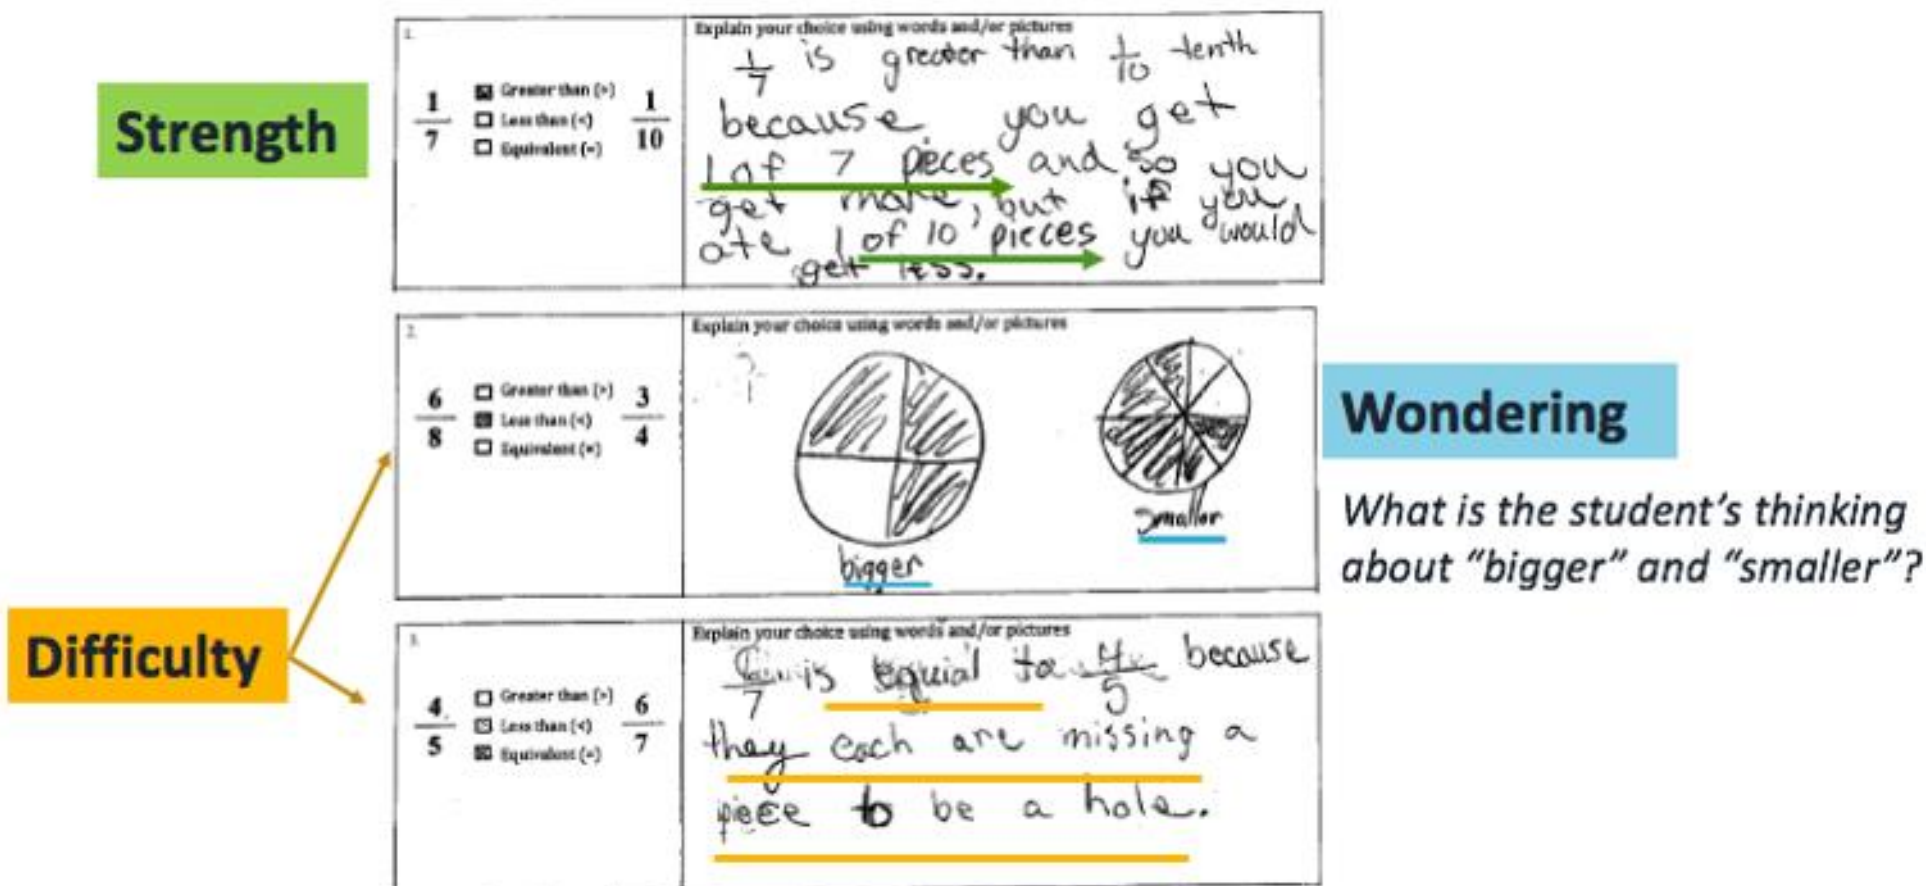 Strength
1.
1/7
☒ Greater than (>)
☐ Less than (<)
☐ Equivalent (=)
1/10
Explain your choice using words and/or pictures
1/7 is greater than 1/10 tenth
because you get
1 of 7 pieces and so you
get more, but if you
ate 1 of 10 pieces you would
get less.
2.
6/8
☐ Greater than (>)
☒ Less than (<)
☐ Equivalent (=)
3/4
Explain your choice using words and/or pictures
bigger
smaller
Wondering
What is the student's thinking
about "bigger" and "smaller"?
Difficulty
3.
4/5
☐ Greater than (>)
☐ Less than (<)
☒ Equivalent (=)
6/7
Explain your choice using words and/or pictures
6/7 is equial to 4/5 because
they each are missing a
piece to be a hole.